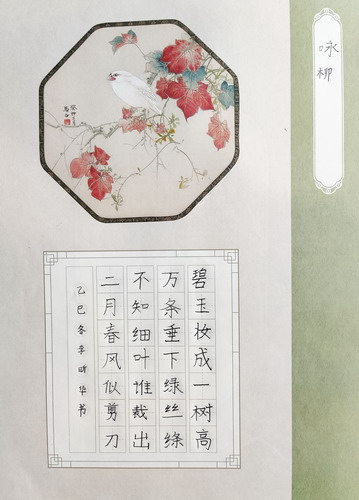 咏柳
碧玉妆成一树高
万条垂下绿丝绦
不知细叶谁裁出
二月春风似剪刀
乙巳冬李时华书